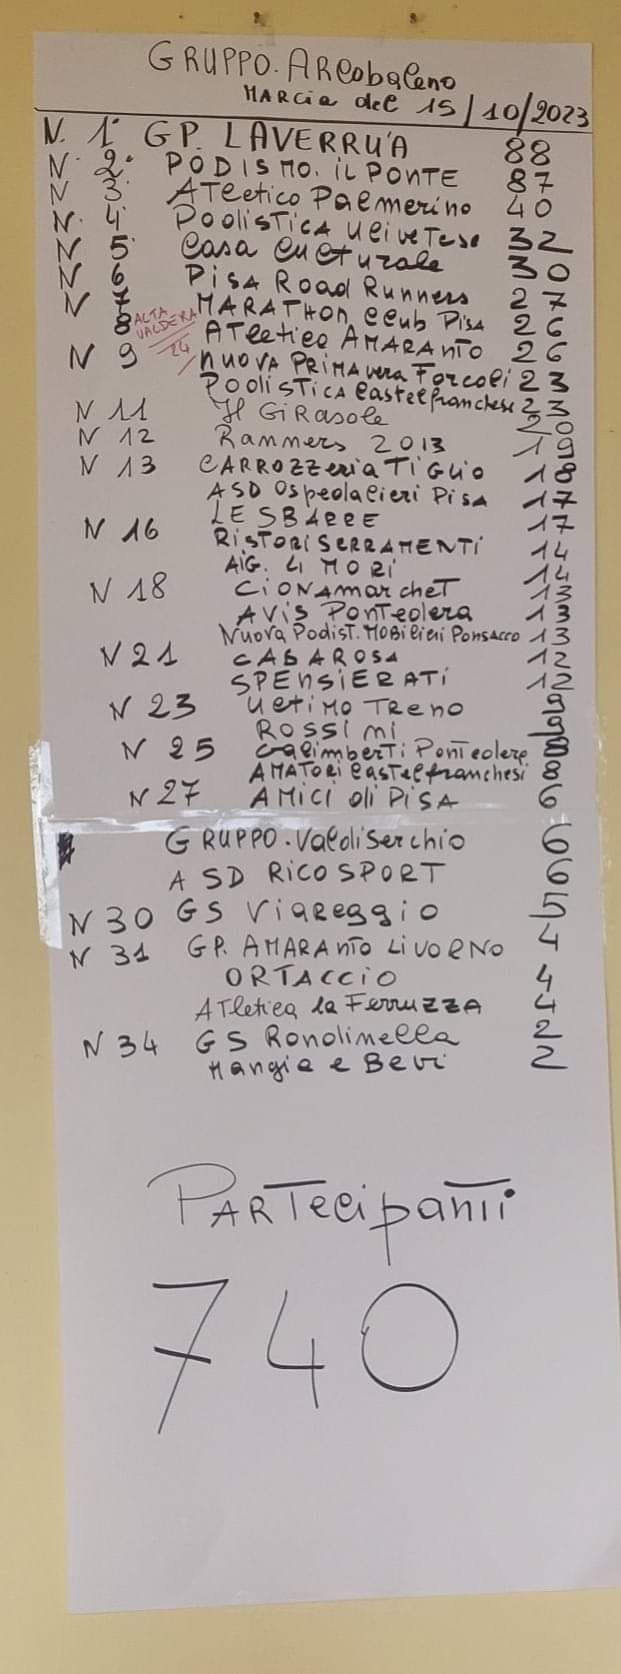 GRUPPO. Arcobaleno
MARCIA del 15/10/2023
N. 1° GP. LAVERRU'A 88
N. 2° PODISMO. IL PONTE 87
N 3 ATletico Palmerino 40
N. 4 PodisTicA UlivеTese 32
N 5 Casa CulTurale 30
N 6 PisA Road Runners 27
N 7 MARATHon Club PisA 26
8 ALTA VALDERA 24
ATletica AMARAnTO 26
N 9 nuovA PRIMAvera Forcoli 23
PodisTicA Castelfranchese 23
N 11 Il GiRAsole 20
N 12 Ranners 2013 19
N 13 CARROZZeria TIGLIO 18
ASD Ospedalieri PisA 17
N 16 LE SBARRE 17
RisTORi SERRAMENTi 14
AIG. Li MORi 14
N 18 CIONAmarcheT 13
AVIS PonTedera 13
Nuova Podist. MOBilieri Ponsacco 13
N 21 CASAROSA 12
SPENSIERATi 12
N 23 UlTiMO TReno 9
ROSSI mi 9
N 25 GalimberTi PonTedera 8
AMATORi Castelfranchesi 8
N 27 AMICI di PISA 6
GRUPPO. Valdiserchio 6
ASD RICO SPORT 6
N 30 GS ViaReggio 5
N 31 GP. AMARAnTO LIVORNO 4
ORTACCIO 4
ATletica la FerruZZA 4
N 34 GS Rondinella 2
Mangia e Bevi 2
PARTecipanTi
740